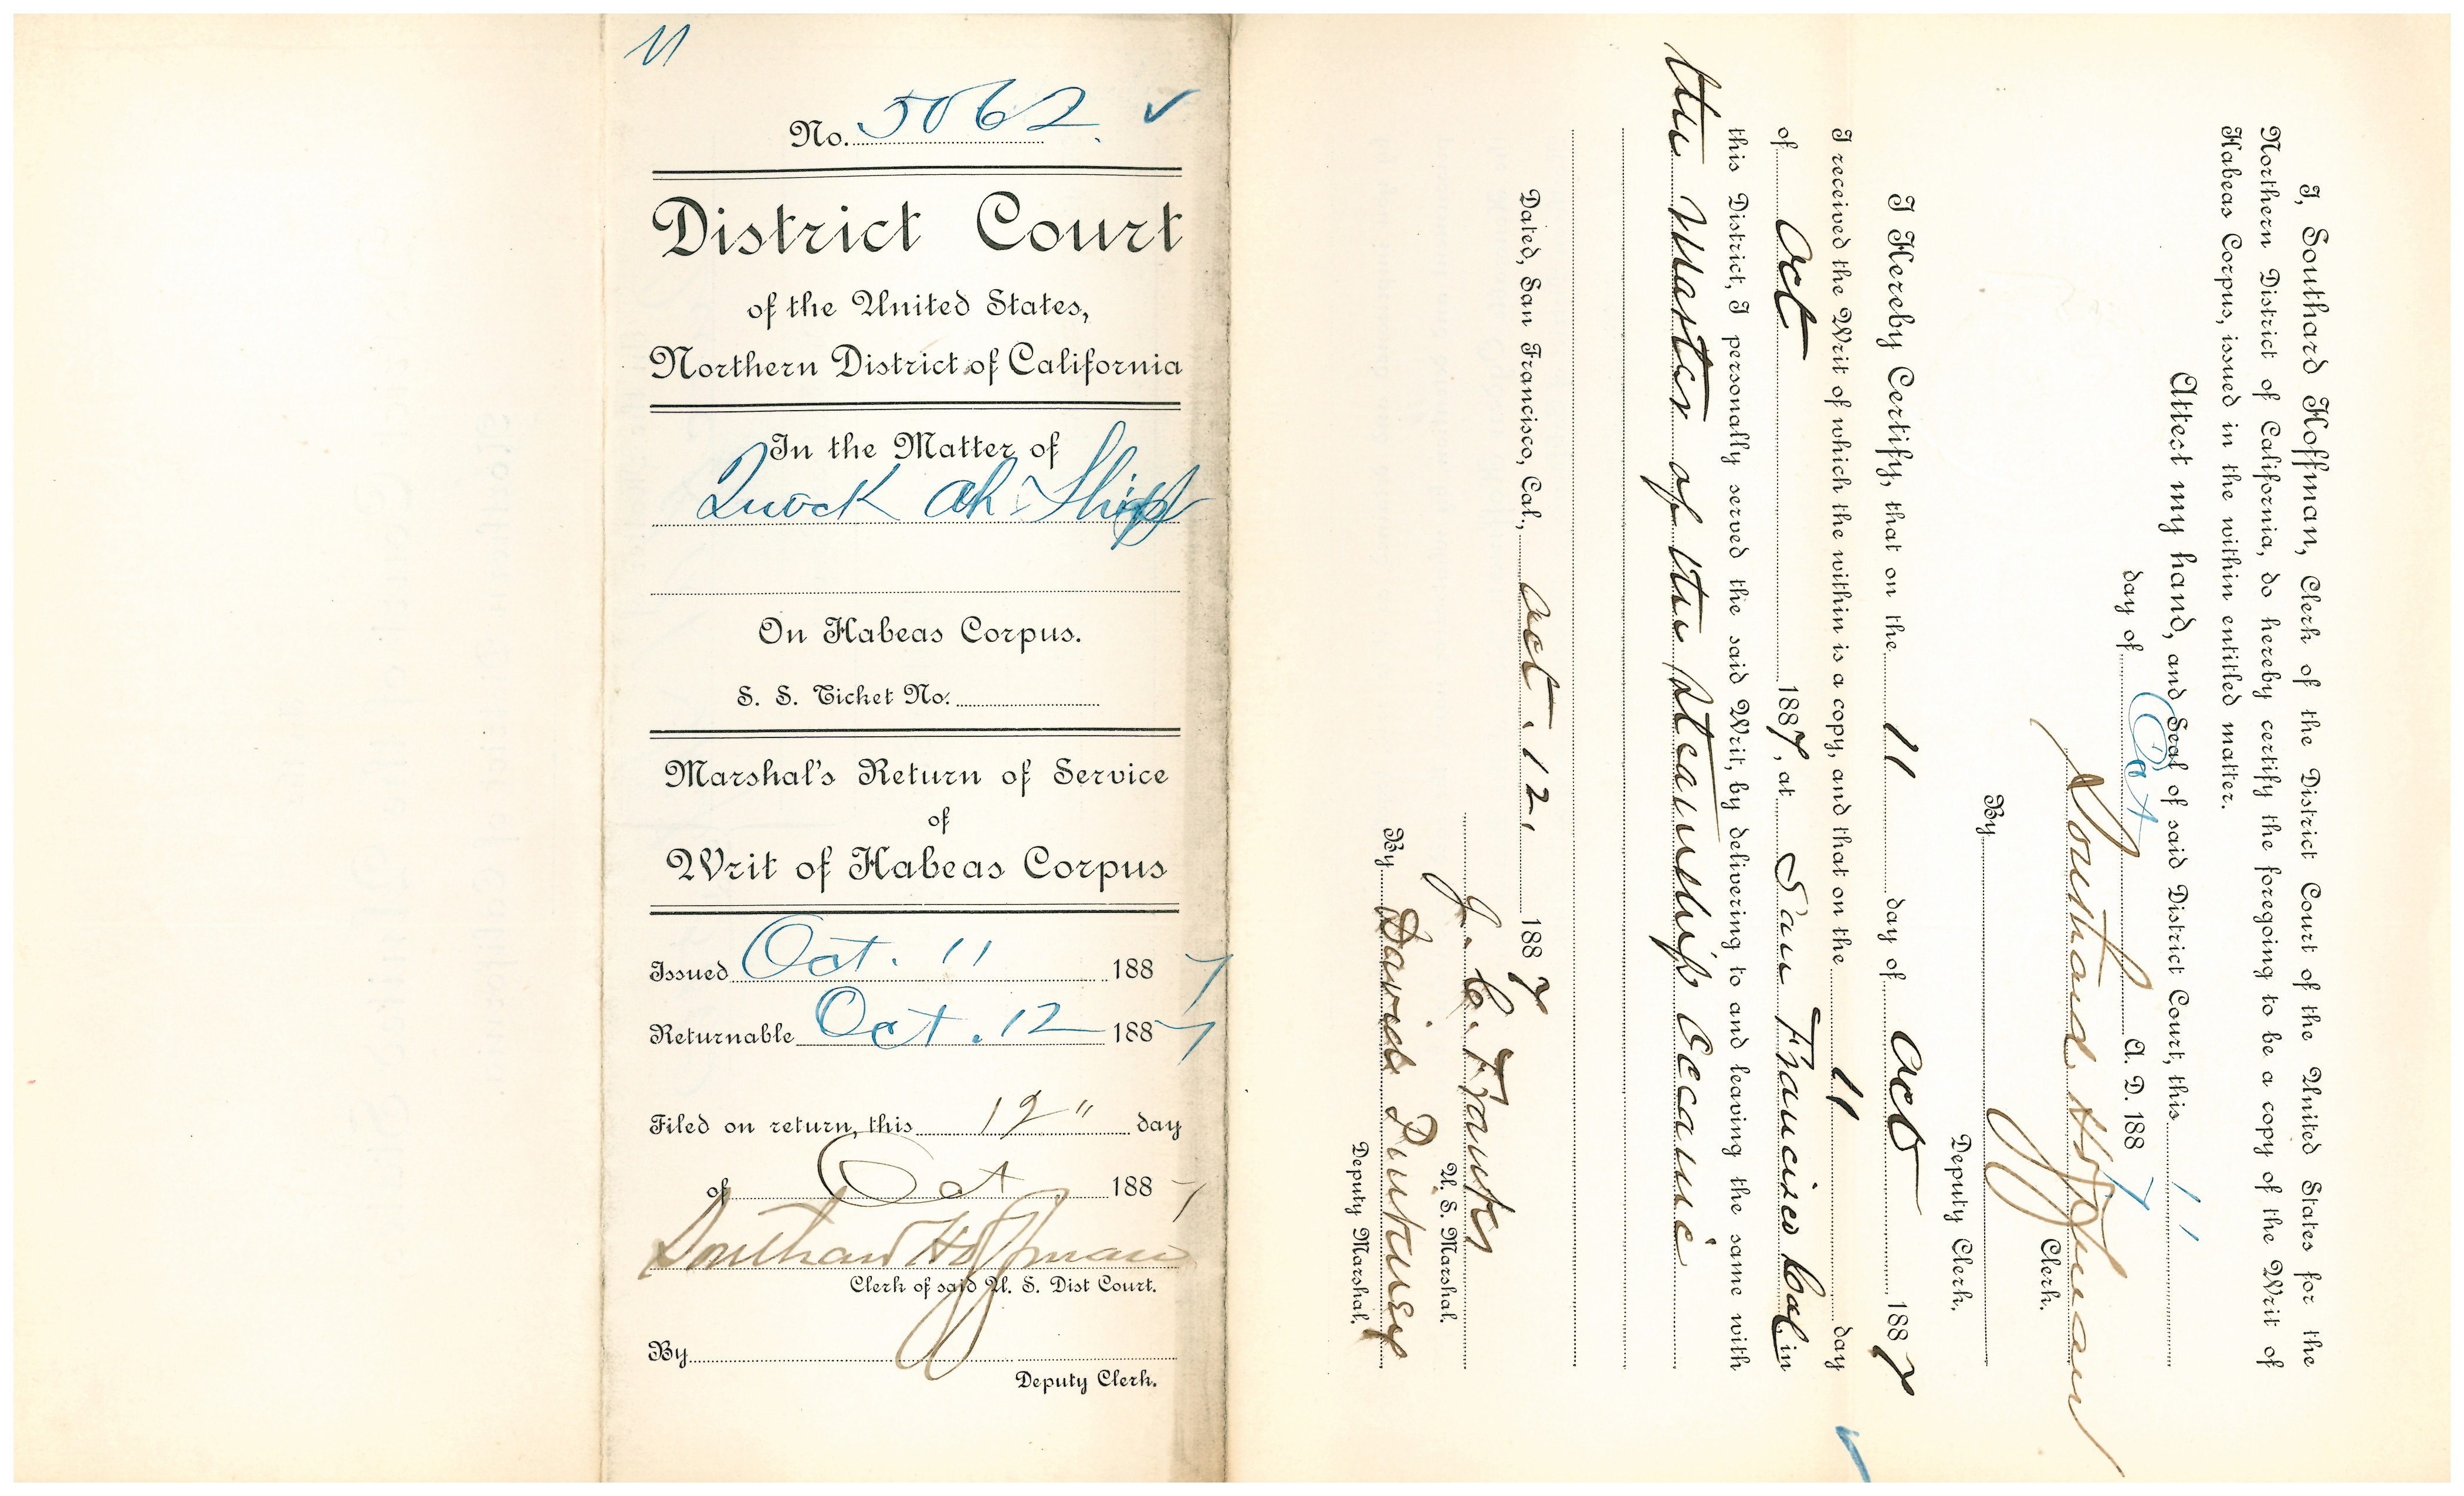 11
No. 5062.
District Court
of the United States,
Northern District of California
In the Matter of
Quock Ah
On Habeas Corpus.
S. S. Ticket No.
Marshal's Return of Service
of
Writ of Habeas Corpus
Issued Oct. 11 1887
Returnable Oct. 12 1887
Filed on return, this 12" day
of Oct 1887
Southard Hoffman
Clerk of said U. S. Dist Court.
By
Deputy Clerk.
I, Southard Hoffman, Clerk of the District Court of the United States for the
Northern District of California, do hereby certify the foregoing to be a copy of the Writ of
Habeas Corpus, issued in the within entitled matter.
Attest my hand, and Seal of said District Court, this 11
day of Oct A. D. 1887
Southard Hoffman
Clerk.
By
Deputy Clerk.
I Hereby Certify, that on the 11 day of Oct 1887
I received the Writ of which the within is a copy, and that on the 11 day
of Oct 1887, at San Francisco Cal in
this District, I personally served the said Writ, by delivering to and leaving the same with
the Master of the steamship Oceanic
Dated, San Francisco, Cal., Oct. 12, 1887
J. C. Franks
U. S. Marshal.
By David
Deputy Marshal.